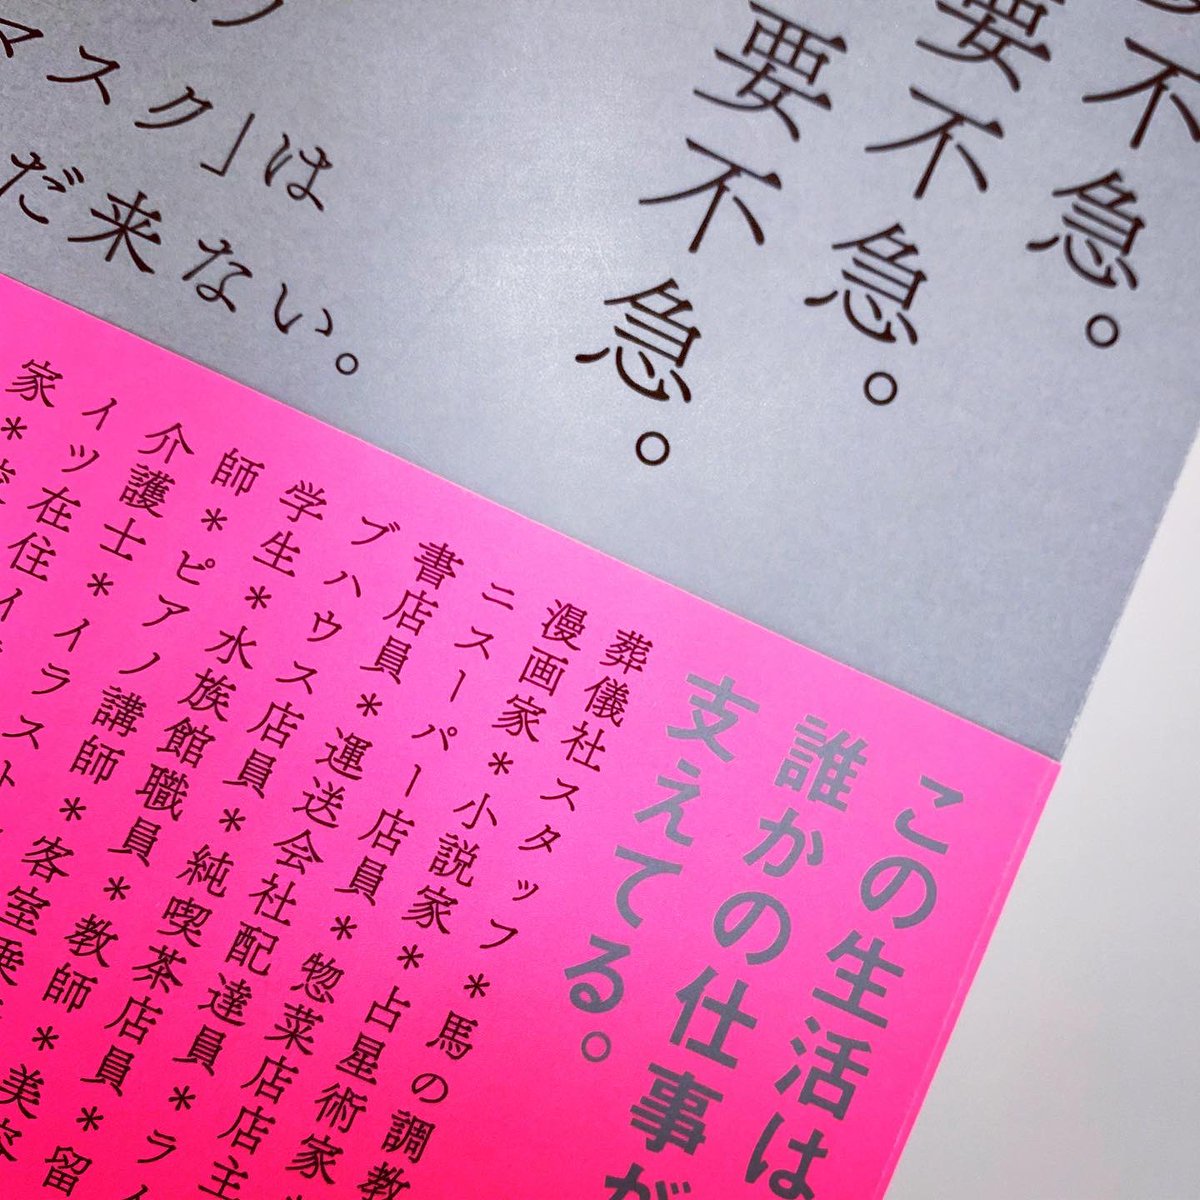 不急。
要不急。
要不急。
マスク」は
だ来ない。
この生活は
誰かの仕事が
支えてる。
葬儀社スタッフ*馬の調教
漫画家*小説家*占星術家*
ニスーパー店員*惣菜店店主
書店員*運送会社配達員*ラ
ブハウス店員*純喫茶店員*留
学生*水族館職員*教師*美容
師*ピアノ講師*客室乗
介護士*イラスト
イツ在住イ
家*